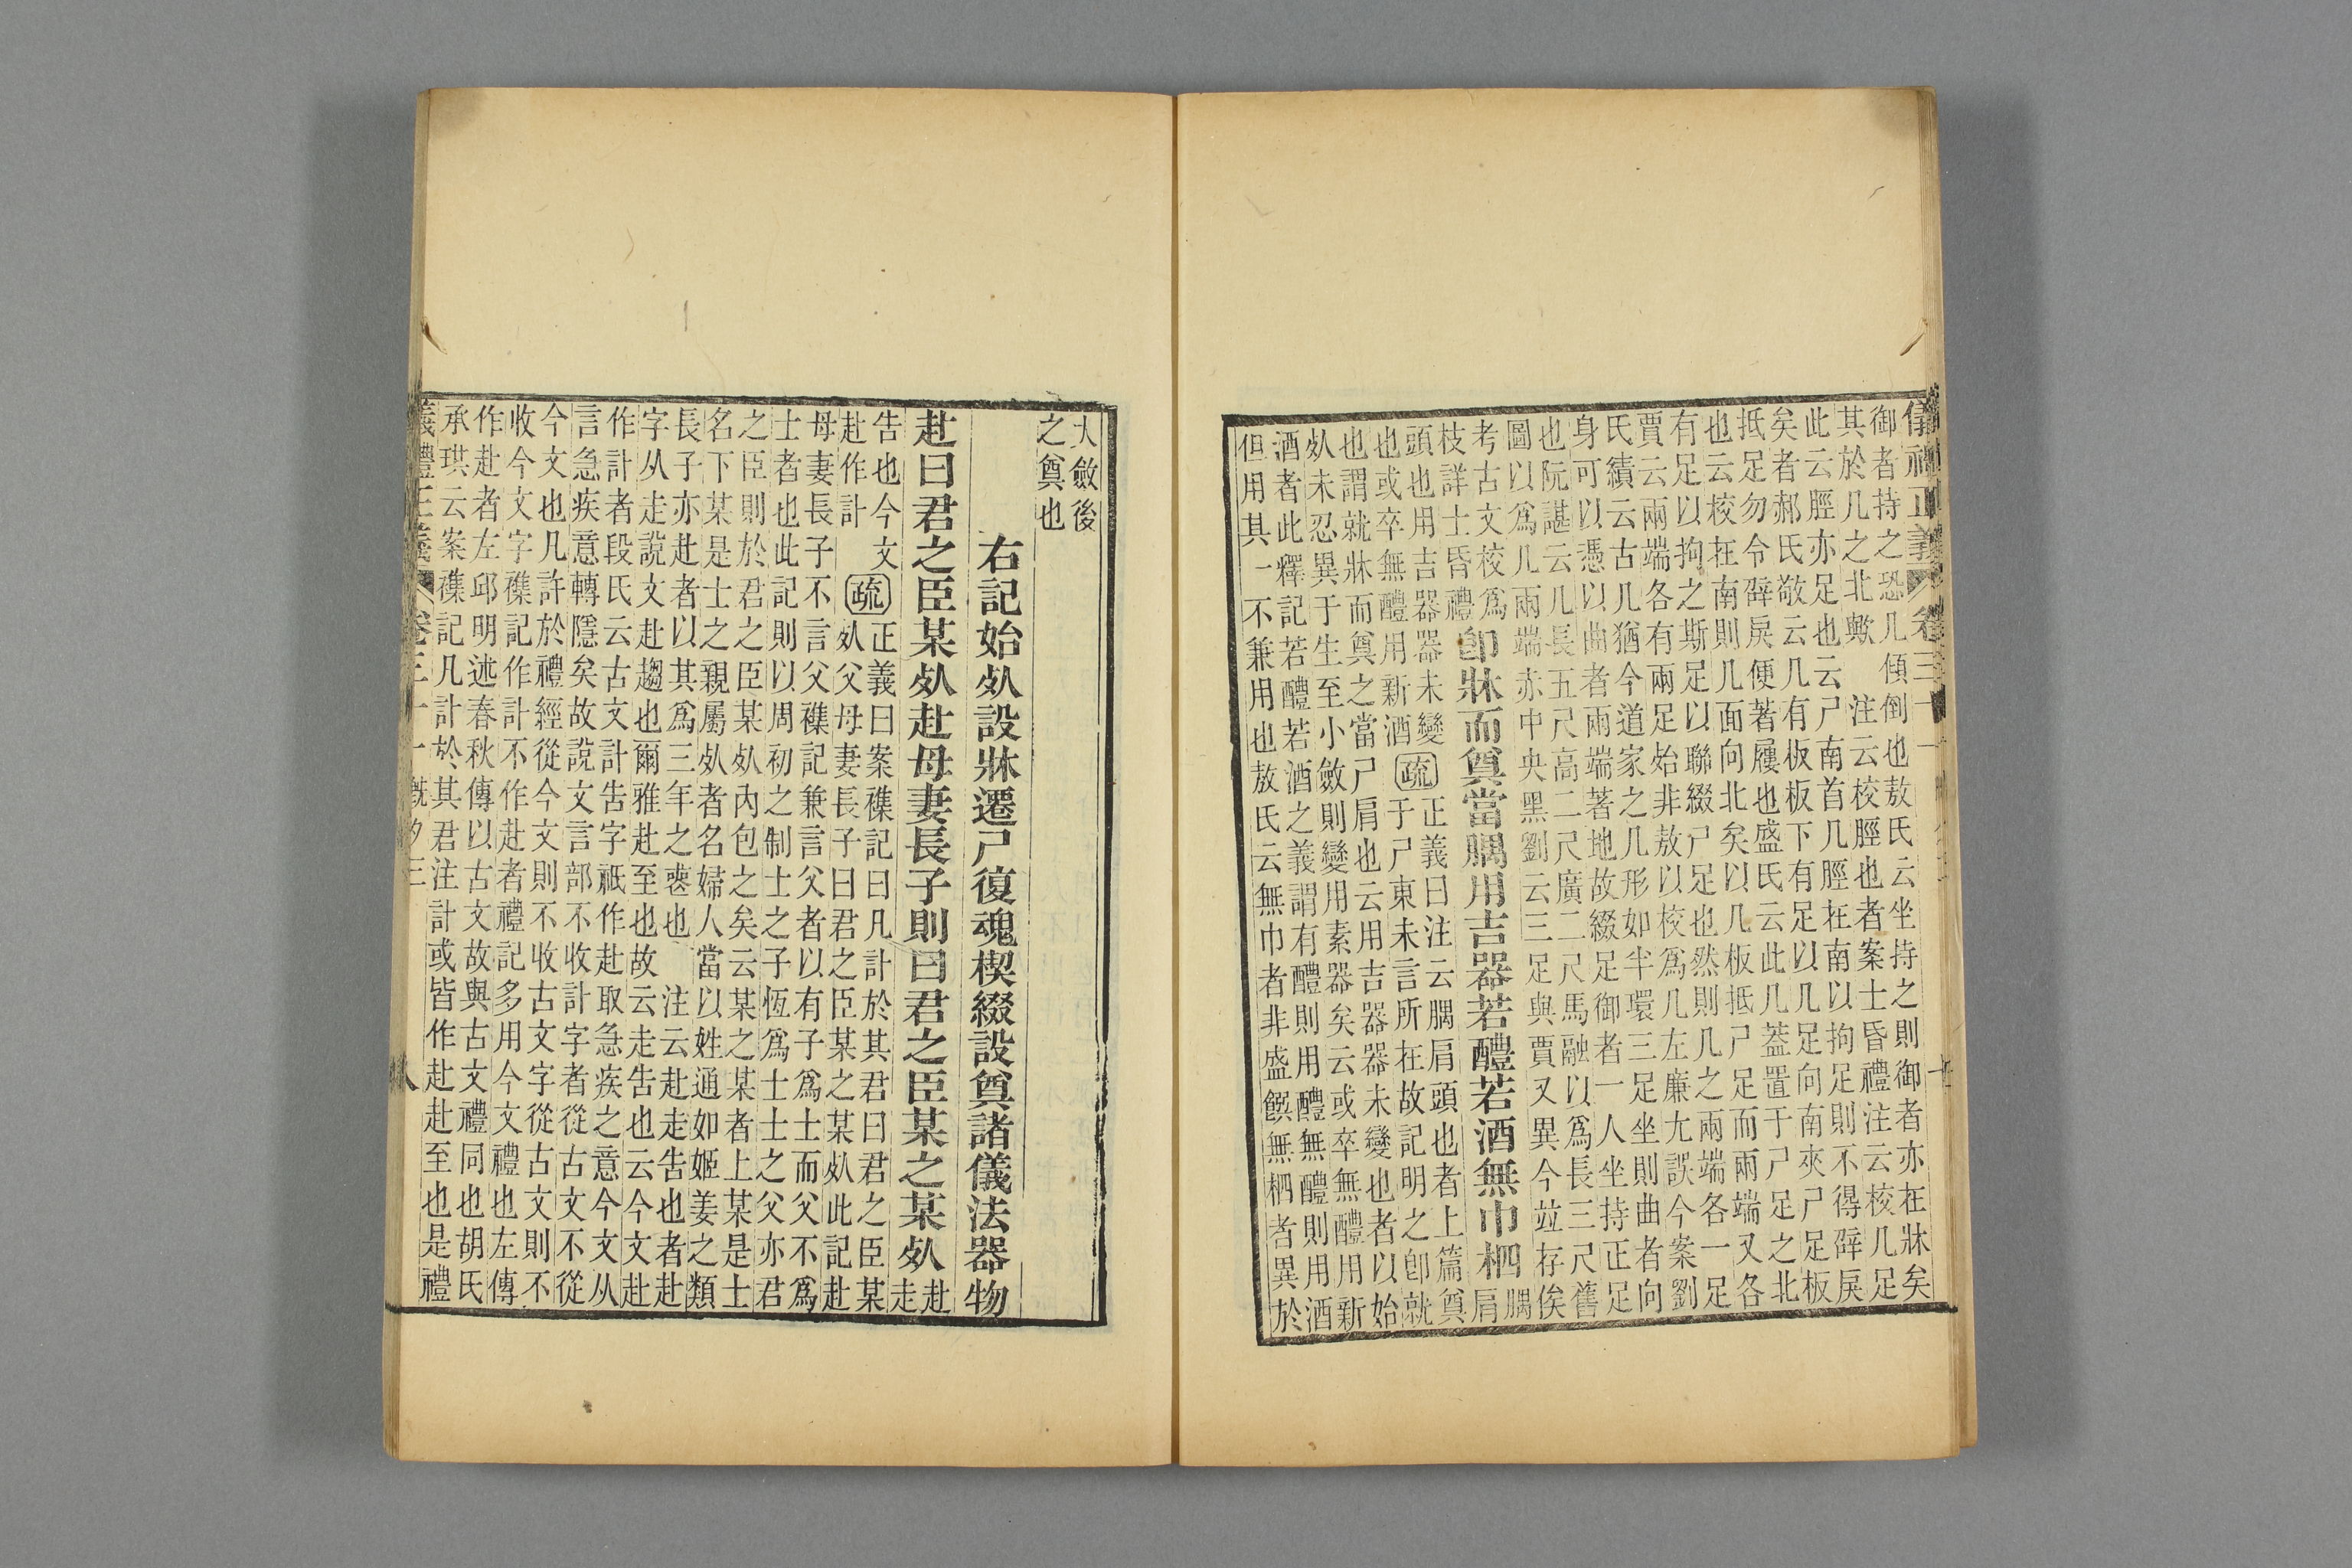 儀禮正義 卷三十一
御者持之恐几傾倒也敖氏云坐持之則御者亦在牀矣
其於几之北歟　注云校脛也者案士昏禮注云校几足
此云脛亦足也云尸南首几脛在南以拘足則不得辟戾
矣者郝氏敬云几有板板下有足以几足向南夾尸足板
抵足勿令辟戾便著屨也盛氏云此几蓋置于尸足之北
也云校在南則几面向北矣以几板抵尸足而兩端又各
有足以拘之斯足以聯綴尸足也然則几之兩端各一足
賈云兩端各有兩足始非敖以校爲几左廉尤誤今案劉
氏績云古几猶今道家之几形如半環三足坐則曲者向
身可以憑以曲者兩端著地故綴足御者一人坐持正足
也阮諶云几長五尺高二尺廣二尺馬融以爲長三尺舊
圖以爲几兩端赤中央黑劉云三足與賈又異今竝存俟
考古文校爲
枝詳士昏禮
卽牀而奠當腢用吉器若醴若酒無巾柶
腢
肩
頭也用吉器器未變
也或卒無醴用新酒
疏
正義曰注云腢肩頭也者上篇奠
于尸東未言所在故記明之卽就
也謂就牀而奠之當尸肩也云用吉器器未變也者以始
死未忍異于生至小斂則變用素器矣云或卒無醴用新
酒者此釋記若醴若酒之義謂有醴則用醴無醴則用酒
但用其一不兼用也敖氏云無巾者非盛饌無柶者異於
大斂後
之奠也
右記始死設牀遷尸復魂楔綴設奠諸儀法器物
赴曰君之臣某死赴母妻長子則曰君之臣某之某死
赴
走
告也今文
赴作訃
疏
正義曰案襍記曰凡訃於其君曰君之臣某
死父母妻長子曰君之臣某之某死此記赴
母妻長子不言父襍記兼言父者以有子爲士而父不爲
士者也此記則以周初之制士之子恆爲士士之父亦君
之臣則於君之臣某死內包之矣云某之某者上某是士
名下某是士之親屬死者名婦人當以姓通如姬姜之類
長子亦赴者以其爲三年之喪也　注云赴走告也者赴
字从走說文赴趨也爾雅赴至也故云走告也云今文赴
作訃者段氏云古文訃告字祇作赴取急疾之意今文从
言急疾意轉隱矣故說文言部不收訃字者從古文不從
今文也凡許於禮經從今文則不收古文字從古文則不
收今文字襍記作訃不作赴者禮記多用今文禮也左傳
作赴者左邱明述春秋傳以古文故與古文禮同也胡氏
承珙云案襍記凡訃於其君注訃或皆作赴赴至也是禮
儀禮正義 卷三十一 既夕三 八